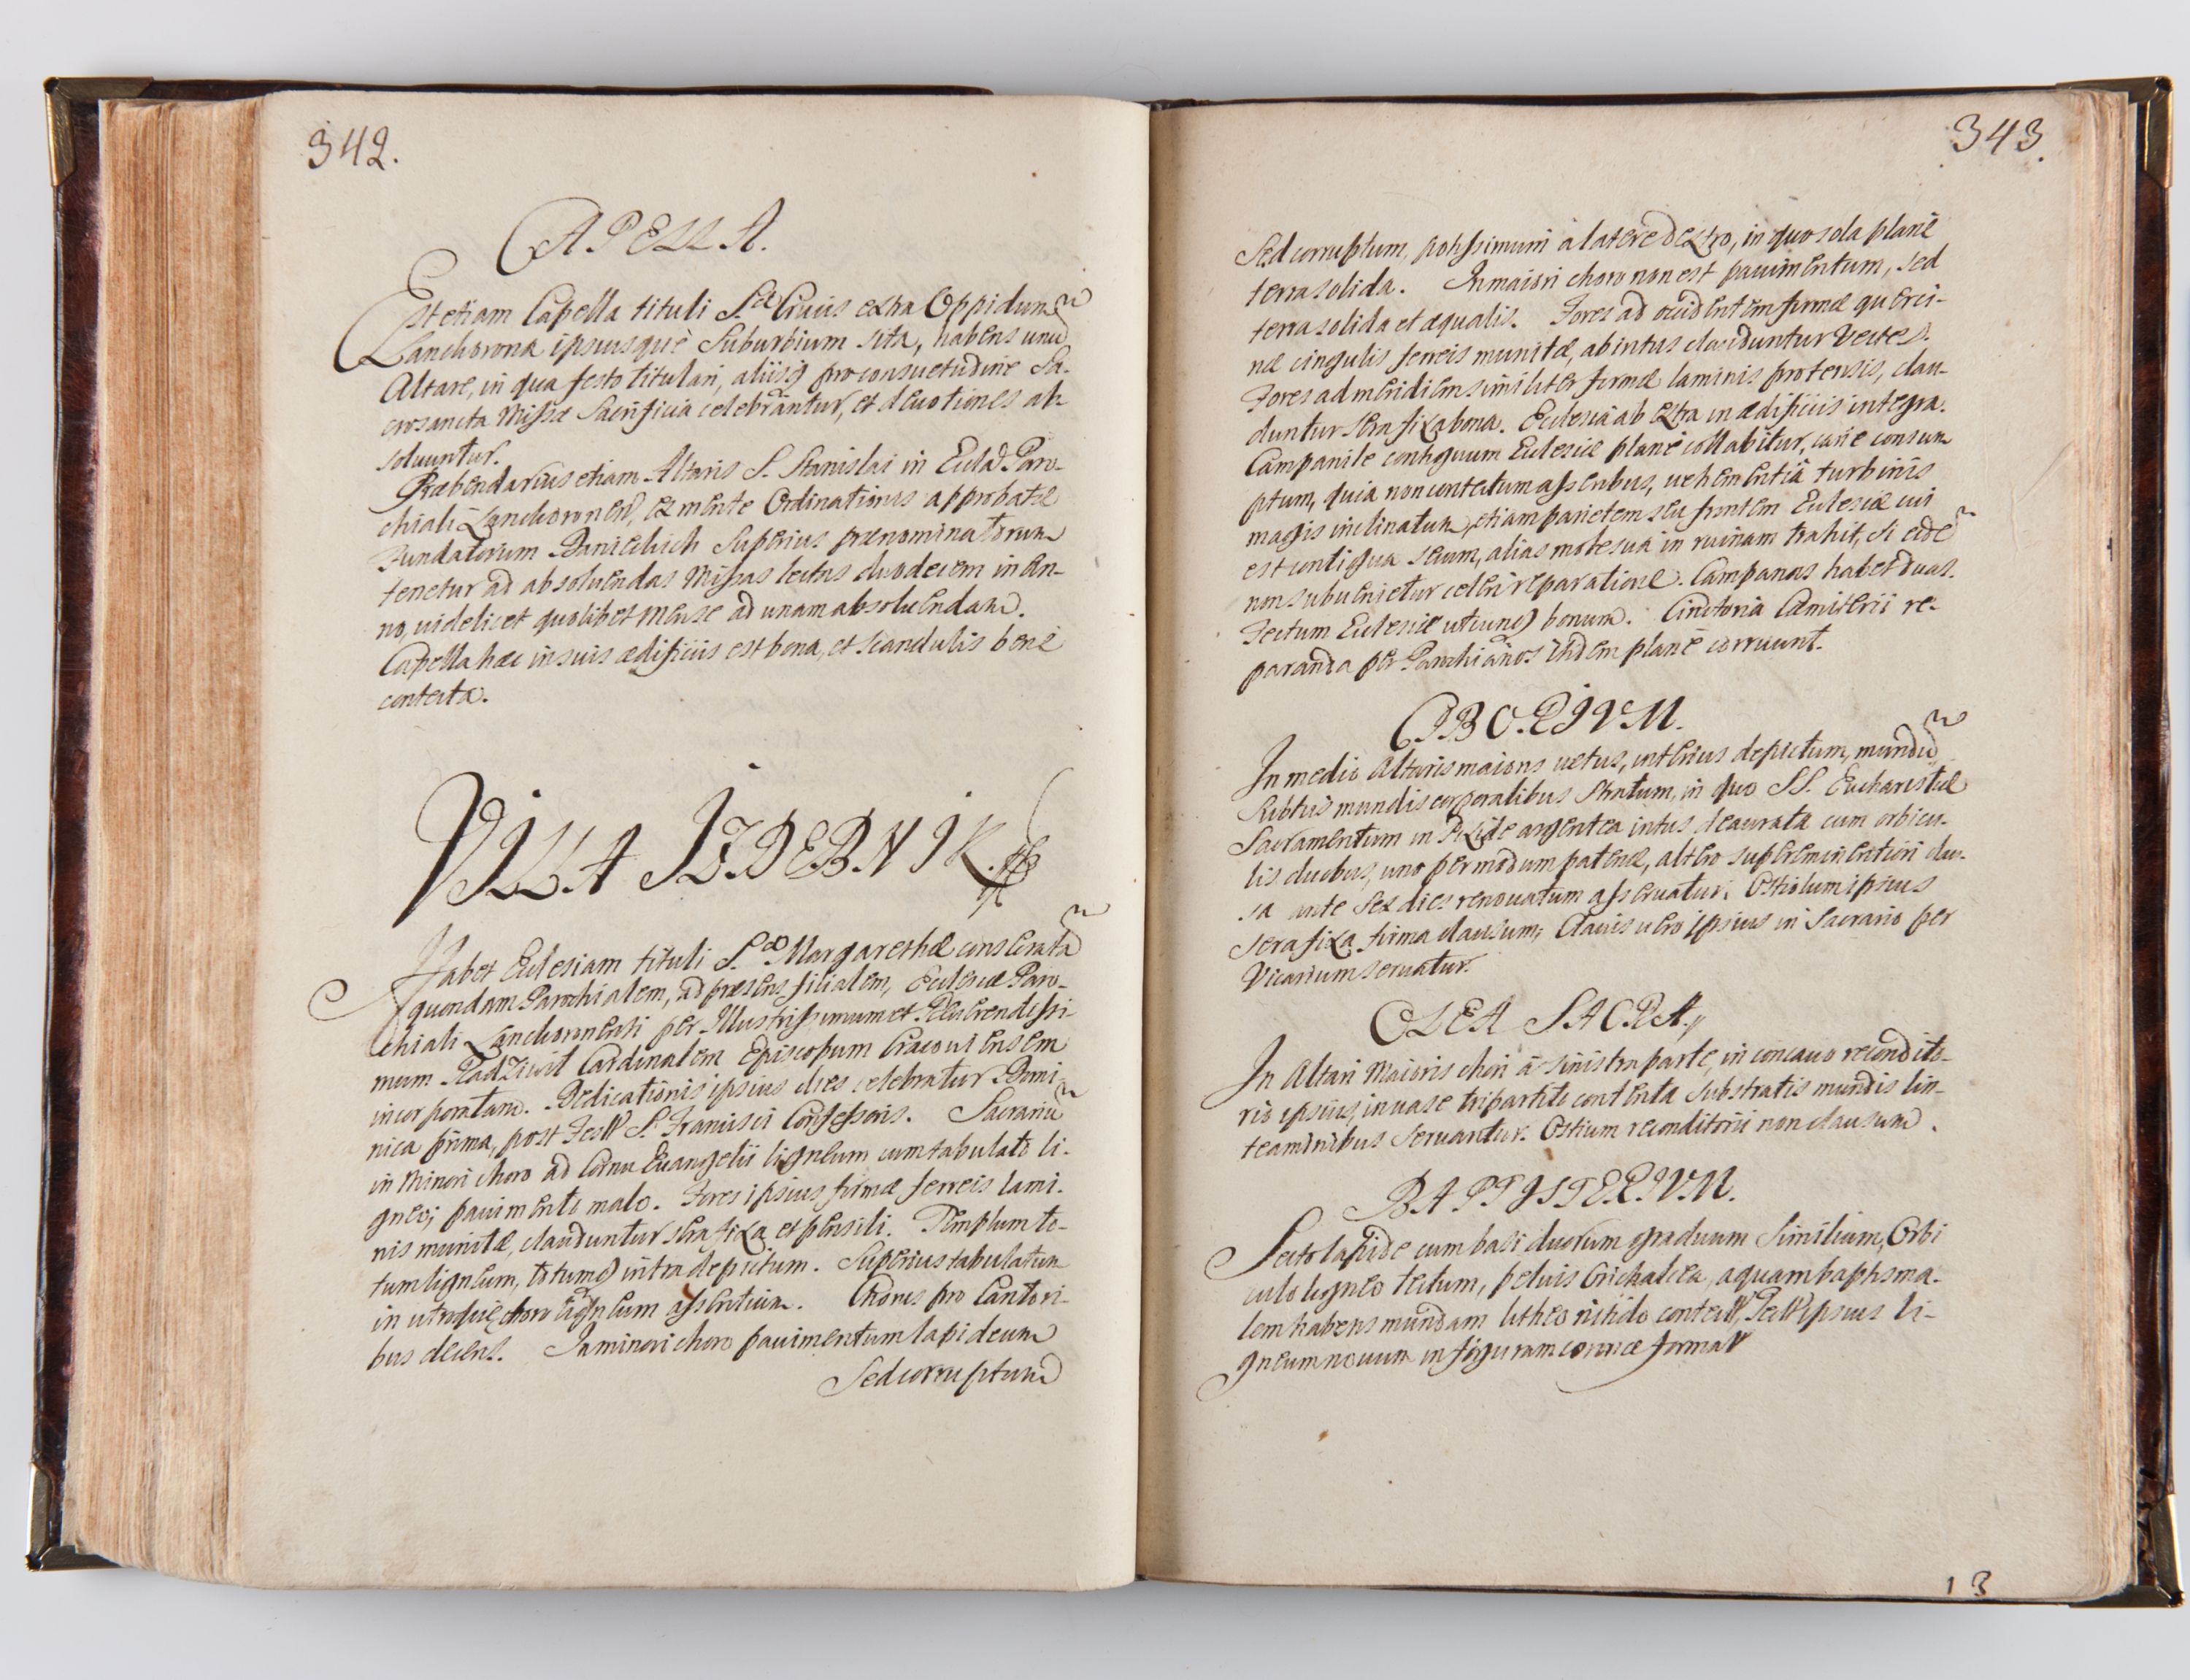 342.
CAPELLA.
Est etiam Capella tituli S.æ Crucis extra Oppidum
Lanckorona ipsiusquè Suburbium sita, habens unũ
Altare, in qua festo titulari, aliisq̃ pro consuetudine Sa-
crosancta Missæ Sacrificia celebrantur, et deuotiones ab-
soluuntur.
Præbendarius etiam Altaris S. Stanislai in Eccla Paro-
chiali Lanckoronen, ex mente Ordinationis approbatæ
Fundatorum Danieckich Superius prænominatorum
tenetur ad absoluendas Missas lectas duodecem in An-
no, uidelicet quolibet Mense ad unam absoluendam.
Capella hæc in suis ædificiis est bona, et scandulis benè
contecta.
VILLA IZDEBNIK.
Habet Eclesiam tituli S.æ Margarethæ consecratã
quondam Parochialem, ad præsens filialem, Eclesiæ Paro-
chiali Lanckoronensi per Illustrissimum et Reuerendissi-
mum Radziwil Cardinalem Episcopum Cracouiensem
incorporatam. Dedicationis ipsius dies celebratur Domi-
nica prima, post Fest S. Francisci Confessoris. Sacrariũ
in Minori choro ad Cornu Euangelii ligneum cum tabulato li-
gneo; pauimento malo. Fores ipsius firmæ ferreis lami-
nis munitæ, clauduntur sera fixa et pensili. Templum to-
tum ligneum, totumq̃ intra depictum. Superius tabulatum
in utroque choro ligneum asseritium. Chorus pro Cantori-
bus decens. In minori choro pauimentum lapideum
Sed corruptum
343.
Sed corruptum, potissimum à latere dextro, in quo sola planè
terra solida. In maiori choro non est pauimentum, sed
terra solida et æqualis. Fores ad occidentem firmæ querci-
næ cingulis ferreis munitæ, ab intus clauduntur Vecte.
Fores ad meridiem similiter firmæ laminis protensis, clau-
duntur sera fixa bona. Eclesia ab extra in ædificiis integra.
Campanile contiguum Eclesiæ planè collabitur, carie consum
ptum, quia non contectum asseribus, uehementiâ turbinis
magis inclinatum, etiam parietem seu frontem Eclesiæ cui
est contigua secum, alias mole sua in ruinam trahit, si eidẽ
non subuenietur celeri reparatione. Campanas habet duas.
Tectum Eclesiæ utcunq̃ bonum. Cinctoria Cæmiterii re-
paranda per Parochianos itidem planè corruunt.
CIBORIVM.
In medio Altaris maioris uetus, interius depictum, mundũ
Subtus mundis corporalibus Stratum, in quo SS. Eucharistiæ
Sacramentum in Pixide argentea intus deaurata cum orbicu-
lis duobus, uno per modum patenæ, altero supereminentiori clau-
sa ante sex dies renouatum asseruatur. Ostiolum ipsius
sera fixa firma clausum; Clauis uero ipsius in Sacrario per
Vicarium seruatur.
OLEA SACRA.
In Altari Maioris chori à sinistra parte, in concauo recondito-
rio ipsius, in uase tripartito contenta substratis mundis lin-
teaminibus seruantur. Ostium reconditorii non clausum.
BAPTISTERIVM.
Secto lapide cum basi duorum graduum Similium, Orbi
culo ligneo tectum, peluis Orichalcea, aquam baptisma-
lem habens mundam litheo nitido contect, Tect ipsius li-
gneum nouum in figuram coronæ format
13